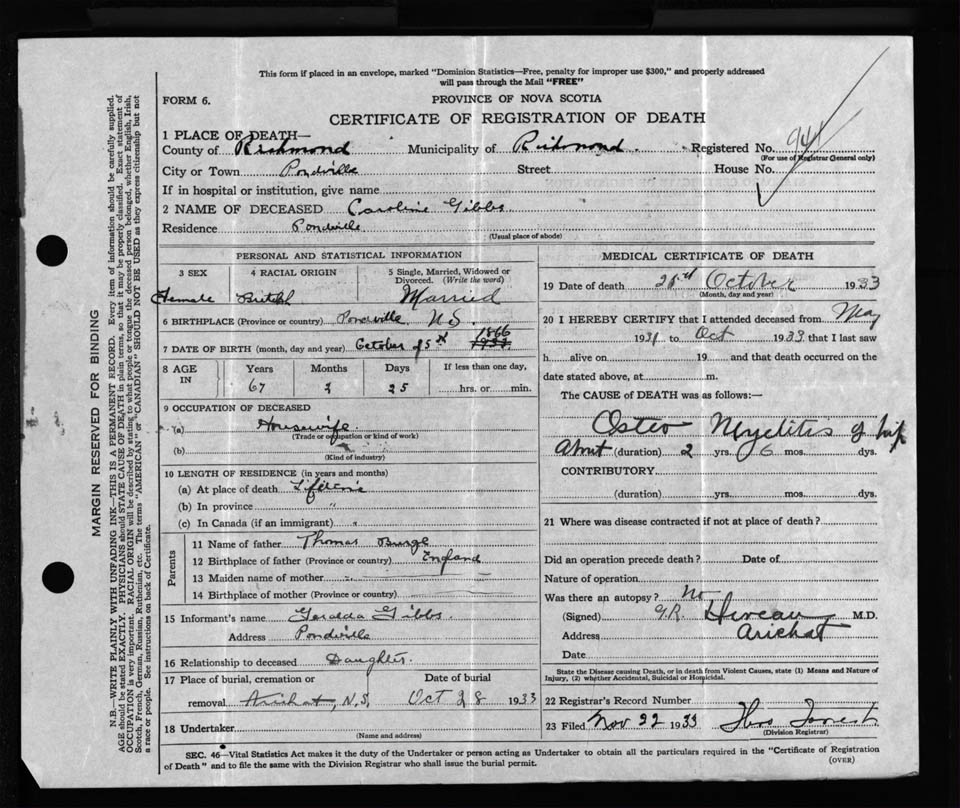 This form if placed in an envelope, marked "Dominion Statistics—Free, penalty for improper use $300," and properly addressed
will pass through the Mail "FREE"
FORM 6.
PROVINCE OF NOVA SCOTIA
CERTIFICATE OF REGISTRATION OF DEATH
1 PLACE OF DEATH—
County of Richmond Municipality of Richmond. Registered No.
(For use of Registrar General only)
City or Town Pondville Street House No.
If in hospital or institution, give name
2 NAME OF DECEASED Caroline Gibbs
Residence Pondville
(Usual place of abode)
PERSONAL AND STATISTICAL INFORMATION
3 SEX 4 RACIAL ORIGIN 5 Single, Married, Widowed or
Divorced. (Write the word)
Female British Married
6 BIRTHPLACE (Province or country) Pondville N.S.
1866
7 DATE OF BIRTH (month, day and year) October 5th
8 AGE IN Years Months Days If less than one day,
67 25 hrs. or min.
9 OCCUPATION OF DECEASED
(a) Housewife
(Trade or occupation or kind of work)
(b)
(Kind of industry)
10 LENGTH OF RESIDENCE (in years and months)
(a) At place of death Lifetime
(b) In province "
(c) In Canada (if an immigrant) "
Parents
11 Name of father Thomas
12 Birthplace of father (Province or country) England
13 Maiden name of mother
14 Birthplace of mother (Province or country)
15 Informant's name Geralda Gibbs.
Address Pondville
16 Relationship to deceased Daughter
17 Place of burial, cremation or Date of burial
removal Arichat, N.S. Oct 28 1933
18 Undertaker
(Name and address)
MEDICAL CERTIFICATE OF DEATH
19 Date of death October 1933
(Month, day and year)
20 I HEREBY CERTIFY that I attended deceased from May
1931 to Oct 1933 that I last saw
h alive on 19 and that death occurred on the
date stated above, at m.
The CAUSE of DEATH was as follows:—
Osteo Myelitis of hip
About (duration) 2 yrs. 6 mos. dys.
CONTRIBUTORY
(duration) yrs. mos. dys.
21 Where was disease contracted if not at place of death?
Did an operation precede death? Date of
Nature of operation
Was there an autopsy? No
(Signed) M.D.
Address Arichat
Date
State the Disease causing Death, or in death from Violent Causes, state (1) Means and Nature of
Injury, (2) whether Accidental, Suicidal or Homicidal.
22 Registrar's Record Number
23 Filed Nov 22 1933
(Division Registrar)
SEC. 46—Vital Statistics Act makes it the duty of the Undertaker or person acting as Undertaker to obtain all the particulars required in the "Certificate of Registration
of Death" and to file the same with the Division Registrar who shall issue the burial permit.
(OVER)
MARGIN RESERVED FOR BINDING
N.B.—WRITE PLAINLY WITH UNFADING INK—THIS IS A PERMANENT RECORD. Every item of information should be carefully supplied.
AGE should be stated EXACTLY. PHYSICIANS should STATE CAUSE OF DEATH in plain terms, so that it may be properly classified. Exact statement of
OCCUPATION is very important. RACIAL ORIGIN will be described by stating to what people or tongue the deceased person belonged, whether English, Irish,
Scotch, French, German, Russian, Ruthenian, etc. The terms "AMERICAN" or "CANADIAN" SHOULD NOT BE USED as they express citizenship but not
a race or people. See instructions on back of Certificate.